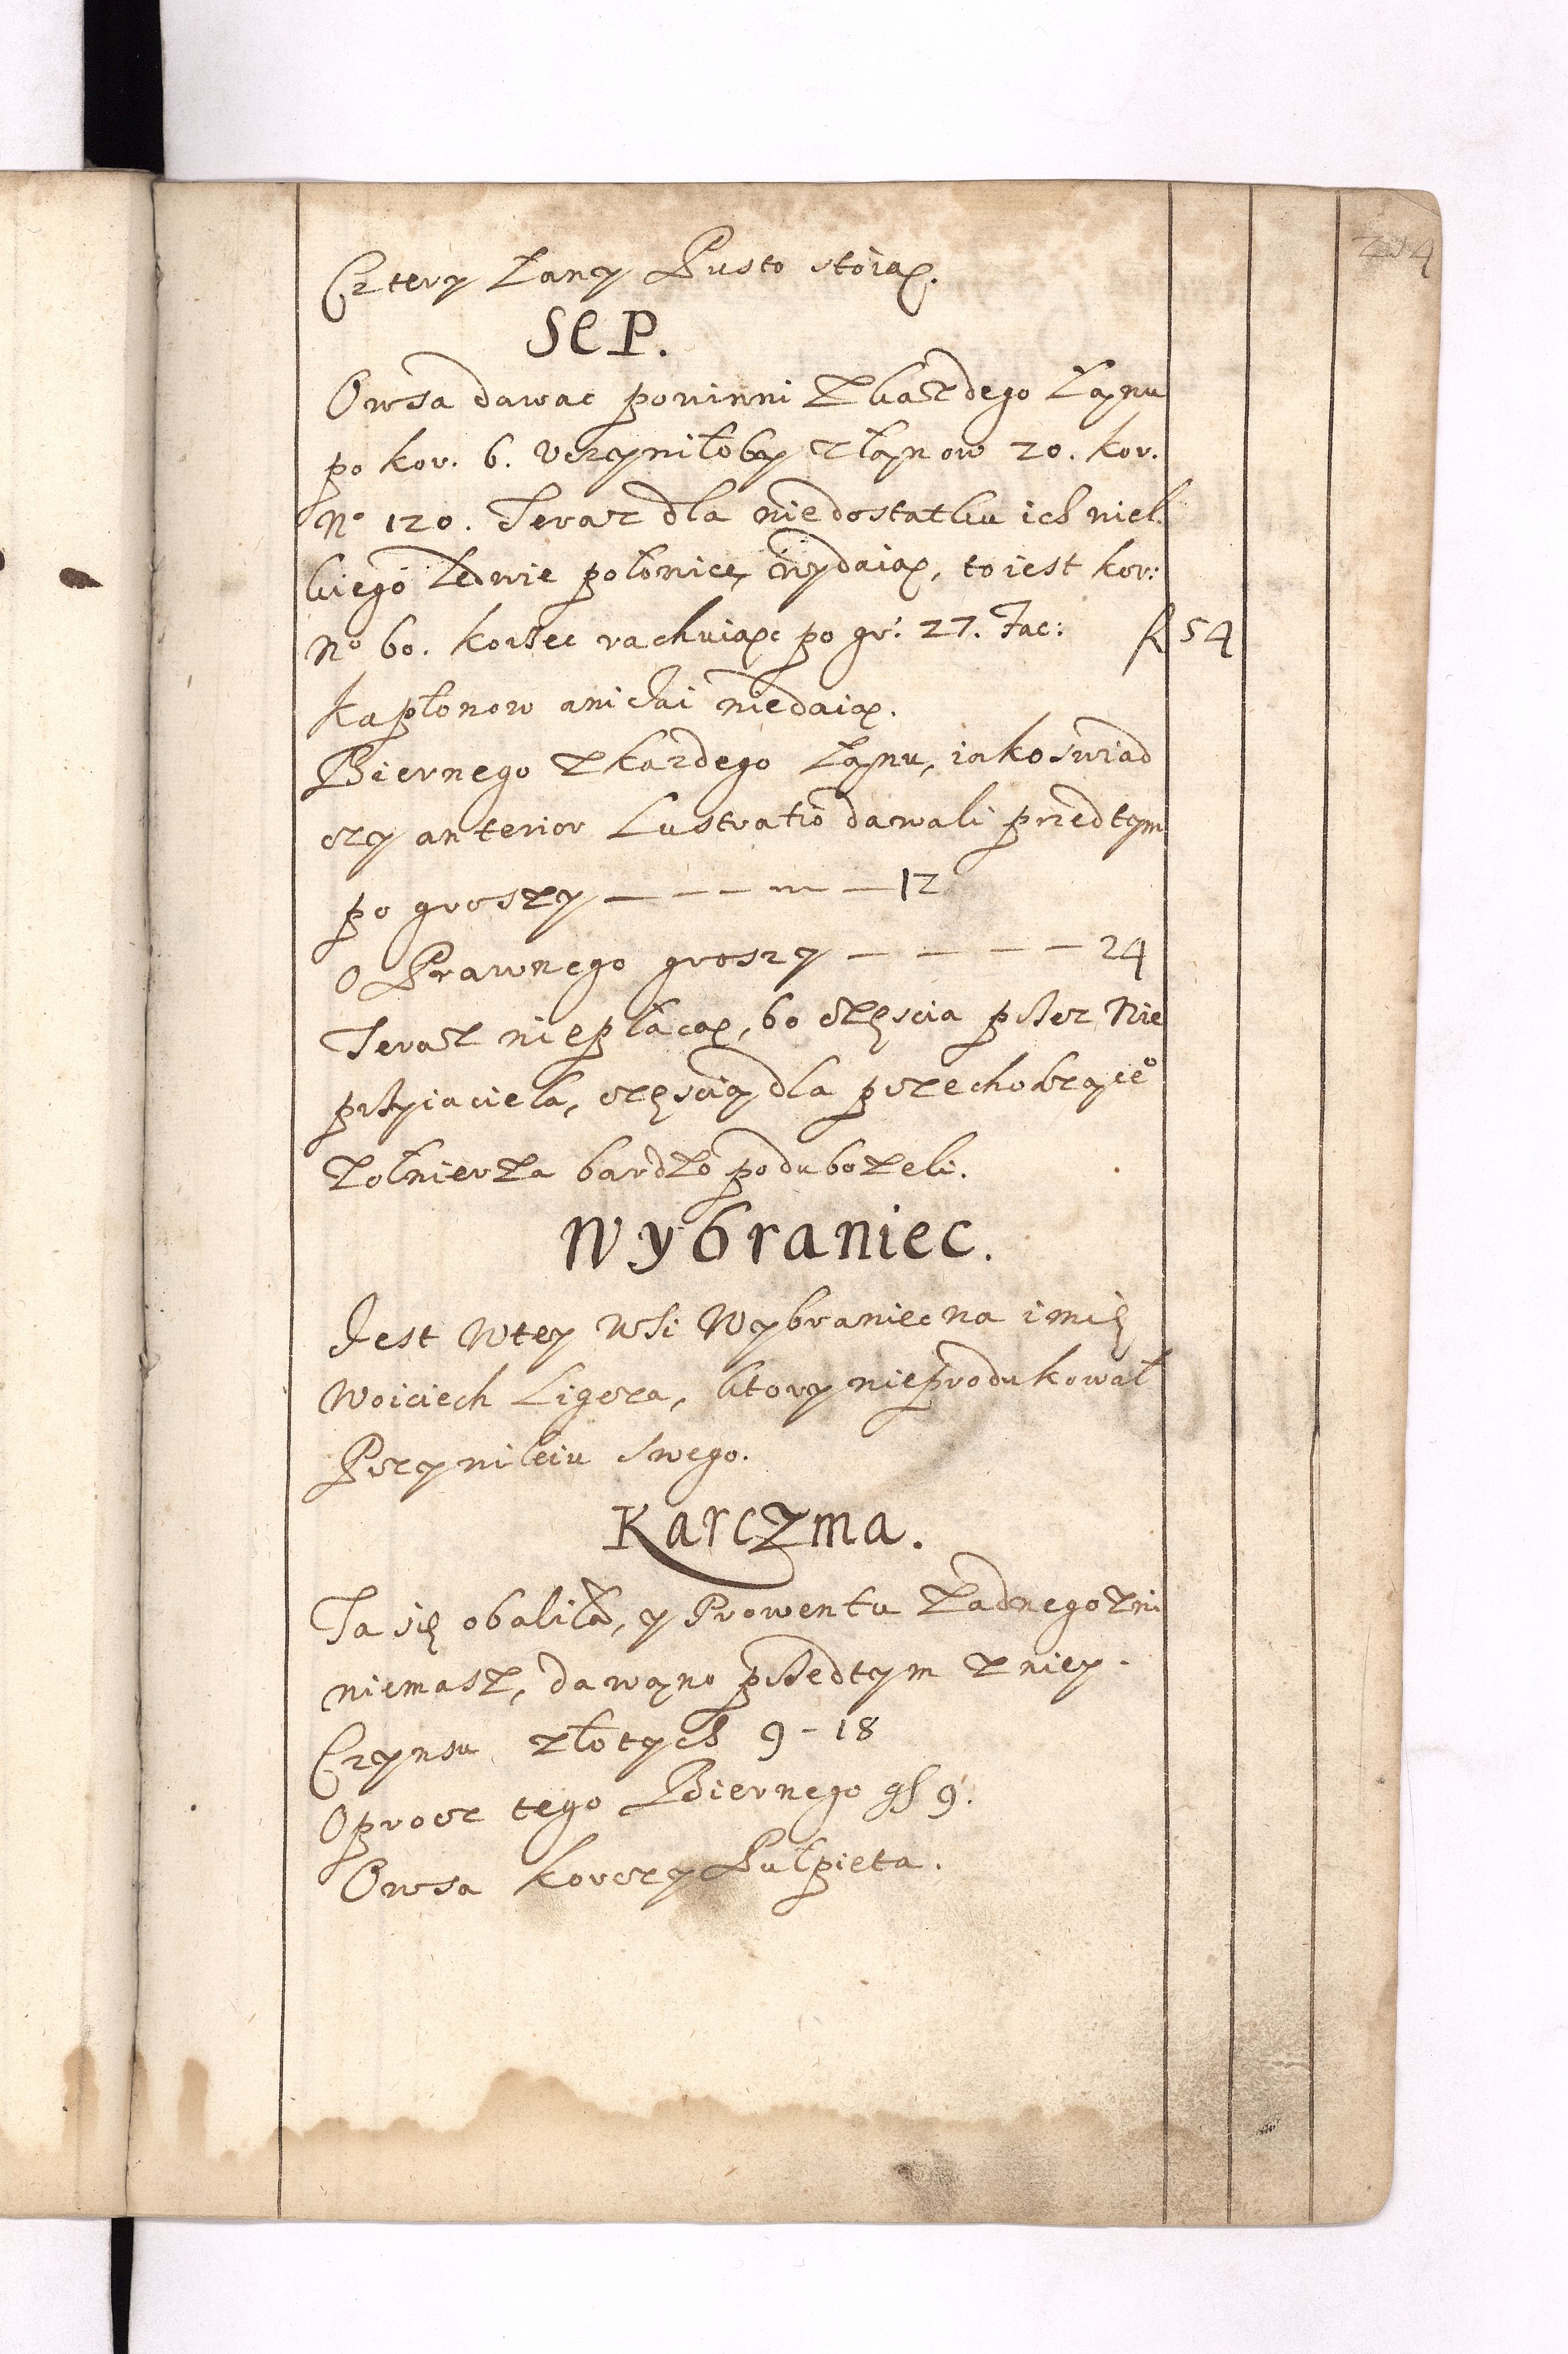 204
Cztery Łany Pusto stoią.
SEP.
Owsa dawac powinni Zkażdego Łanu
po kor. 6. Uczyniłoby z łanow 20. kor.
No 120. Teraz dla niedostatku ich niel
kiego ledwie połowicę wydaią, to iest kor:
No 60. korzec rachuiąc po gr. 27. Fac: f 54
Kapłonow ani Jai niedaią.
Biernego Zkazdego Łanu, iako swiad
czy anterior Lustratio dawali przedtym
po groszy — — — — — 12
O Prawnego groszy — — — — 24
Teraz niepłacą, bo częscia przez Nie
przyiaciela, częscią dla przechodzące°
Zołnierza bardzo podubożeli.
Wybraniec.
Jest Wtey Wsi Wybraniec na imię
Woiciech Ligęza, ktory nieprodukował
Przywileiu swego.
Karczma.
Ta się obaliła, y Prowentu Żadnego zni
niemasz, dawano przedtym z niey.
Czynsu złotych 9 - 18
Oprocz tego Biernego gr 9.
Owsa korczy Pułpięta.